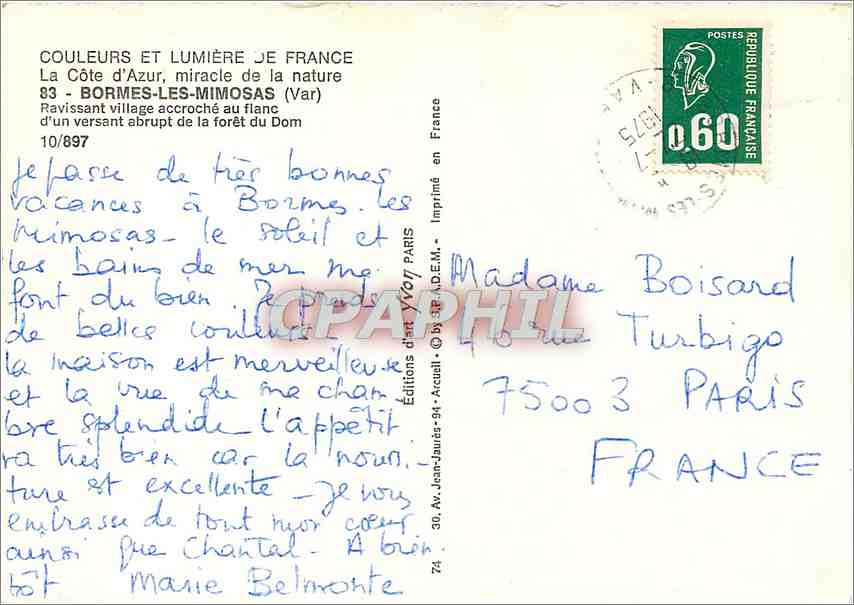 COULEURS ET LUMIÈRE DE FRANCE
La Côte d'Azur, miracle de la nature
83 - BORMES-LES-MIMOSAS (Var)
Ravissant village accroché au flanc
d'un versant abrupt de la forêt du Dom
10/897
Je passe de très bonnes
vacances à Bormes-les
Mimosas - le soleil et
les bains de mer me
font du bien. Je prends
de belles couleurs -
la maison est merveilleuse
et la vue de ma cham
bre splendide L'appétit
va très bien car la nourri-
ture est excellente - Je vous
embrasse de tout mon cœur
ainsi que Chantal - A bien
tôt Marie Belmonte
74 30, Av. Jean-Jaurès - 94 - Arcueil - © by S.P.A.D.E.M. - Imprimé en France
Éditions d'art Yvon PARIS
CPAPHIL
POSTES
RÉPUBLIQUE FRANÇAISE
0,60
1975
Madame Boisard
40 rue Turbigo
75003 PARIS
FRANCE